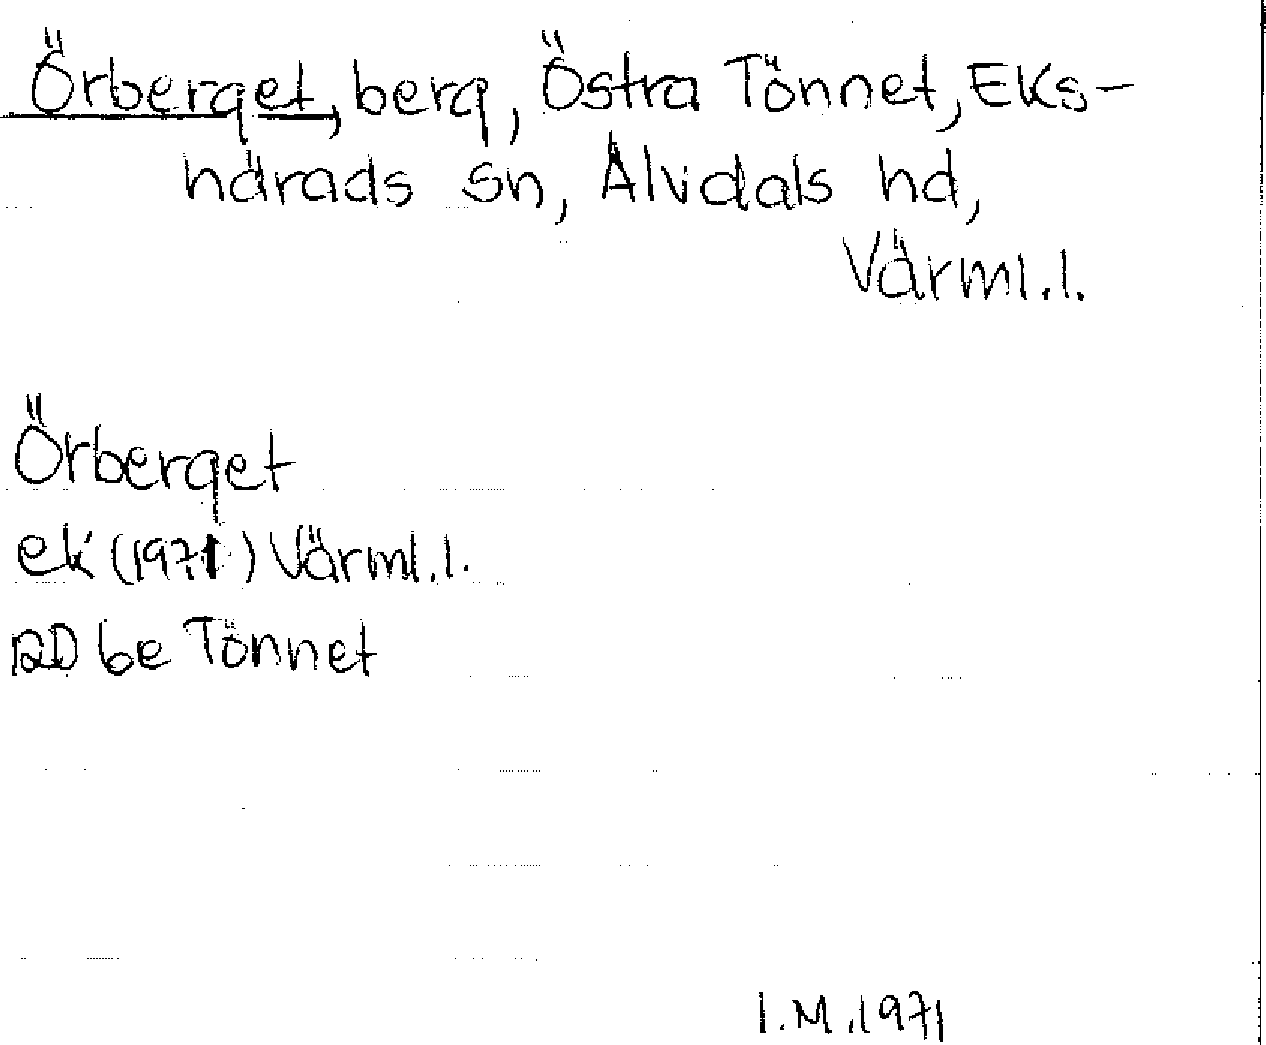 Örberget, berg, Östra Tönnet, Eks-
härads sn, Älvdals hd,
Värml.l.
Örberget
ek (1971) Värml.l.
RD be Tönnet
I.M. 1971